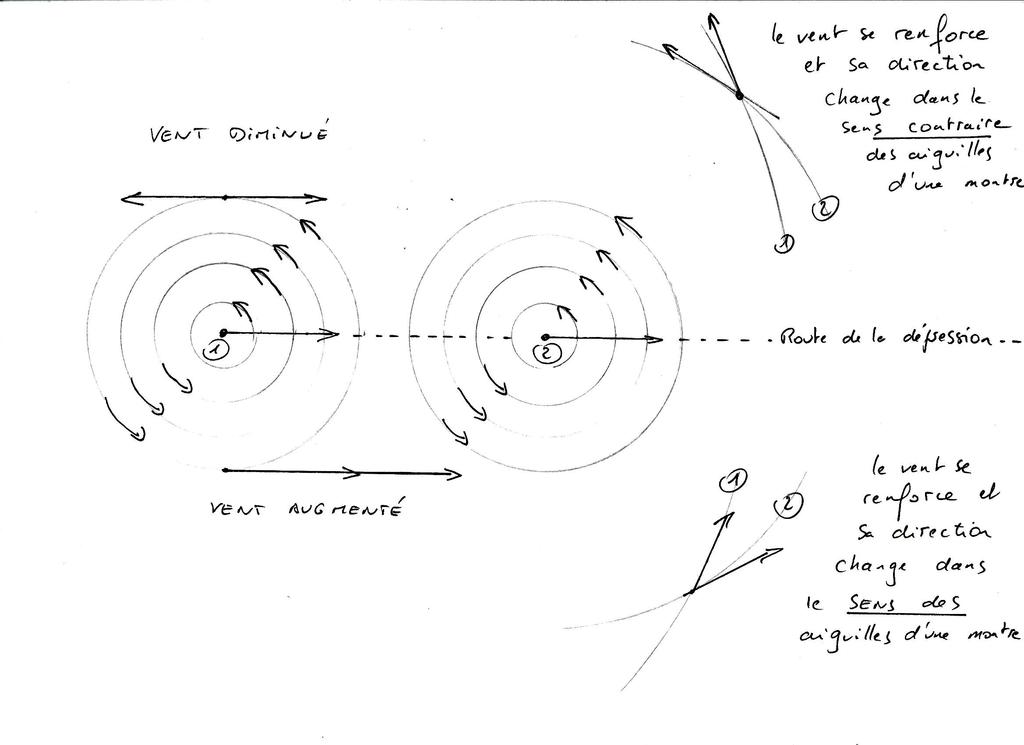 le vent se renforce
et sa direction
change dans le
sens contraire
des aiguilles
d'une montre
VENT DIMINUÉ
2
1
1
2
Route de la dépression
VENT AUGMENTÉ
1
2
le vent se
renforce et
sa direction
change dans
le SENS des
aiguilles d'une montre